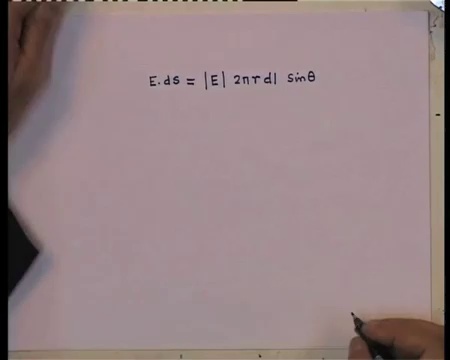 E.ds = |E| 2πr dl sinθ